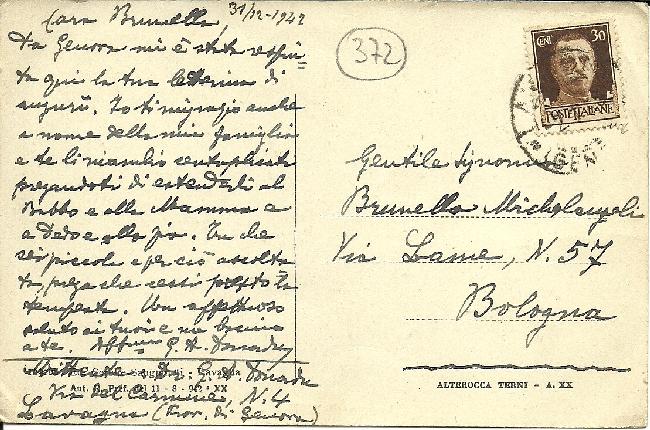 31/12-1942
Cara Brunella,
Da Genova mi è stata respin=
ta qui la tua letterina di
auguri. Io ti ringrazio anche
a nome della mia famiglia
e te li ricambio centuplicati
pregandoti di estenderli al
Babbo e alla Mamma e
a Dede e allo zio. Tu che
sei piccola e perciò ascolta=
ta, prega che cessi presto la
tempesta. Un affettuoso
saluto ai tuoi e un bacino
a te. Aff.mo G. A.
Mittente Dr. G. A.
Via del Carmine, N. 4
Lavagna (Prov. di Genova)
Lavagna
Aut. Pref. del 11 - 8 - 942 - XX
372
CENT 30
POSTE ITALIANE
Gentile Signorina
Brunella Michelangeli
Via Lame, N. 57
Bologna
ALTEROCCA TERNI - A. XX